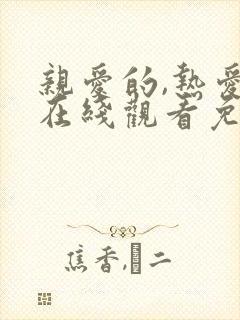 親愛的,熱愛
在綫觀看免
焦香,�二